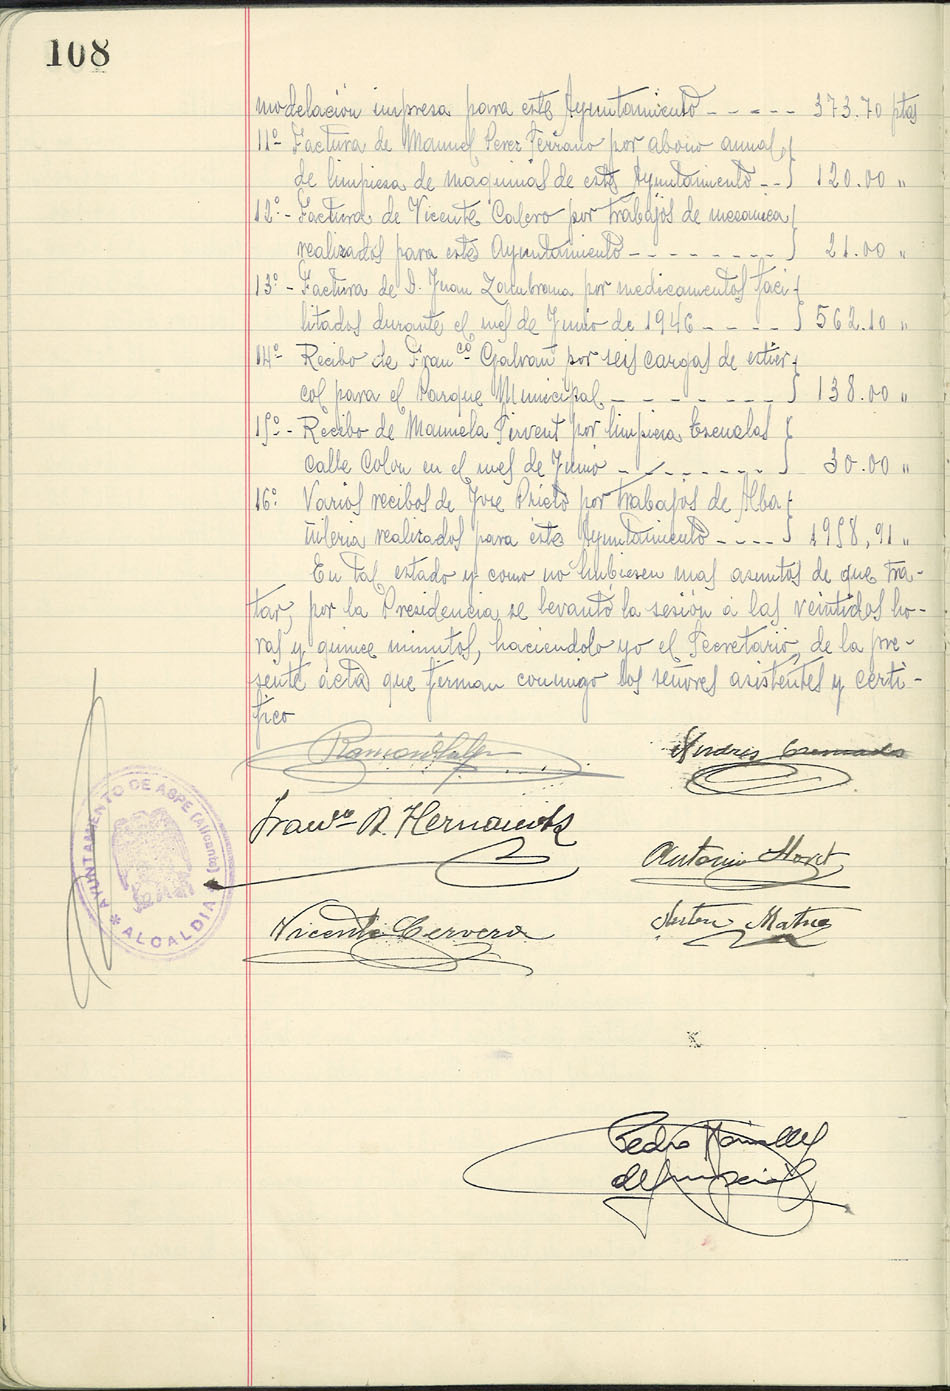 108
modelación impresa para este Ayuntamiento ----- 373.70 ptas
11º- Factura de Manuel Perez Serrano por abono anual
de limpiesa de maquinas de este Ayuntamiento -- 120.00 "
12º- Factura de Vicente Calero por trabajos de mecanica
realizados para este Ayuntamiento -------- 21.00 "
13º- Factura de D. Juan Zambrana por medicamentos faci-
litados durante el mes de Junio de 1946 ---- 562.10 "
14º- Recibo de Franco Galvañ por seis cargas de estier-
col para el Parque Municipal -------- 138.00 "
15º- Recibo de Manuela Sirvent por limpiesa Escuelas
calle Colon en el mes de Junio ------- 30.00 "
16º Varios recibos de Jose Prieto por trabajos de Alba
ñileria realizados para este Ayuntamiento ---- 1958,91 "
En tal estado y como no hubiesen mas asuntos de que tra-
tar, por la Presidencia se levantó la sesión a las veintidos ho-
ras y quince minutos, haciendolo yo el Secretario, de la pre-
sente acta que firman conmigo los señores asistentes y certi-
fico
Andres Cremades
AYUNTAMIENTO DE ASPE (Alicante)
* ALCALDIA *
Franco A. Hernandez
Antonio
Vicente Cervera
Pedro